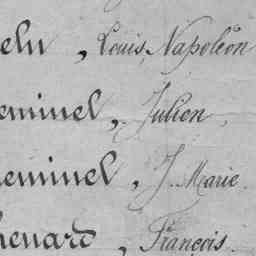 elu, Louis Napoléon
eminel, Julien
eminel, J. Marie
henard, François